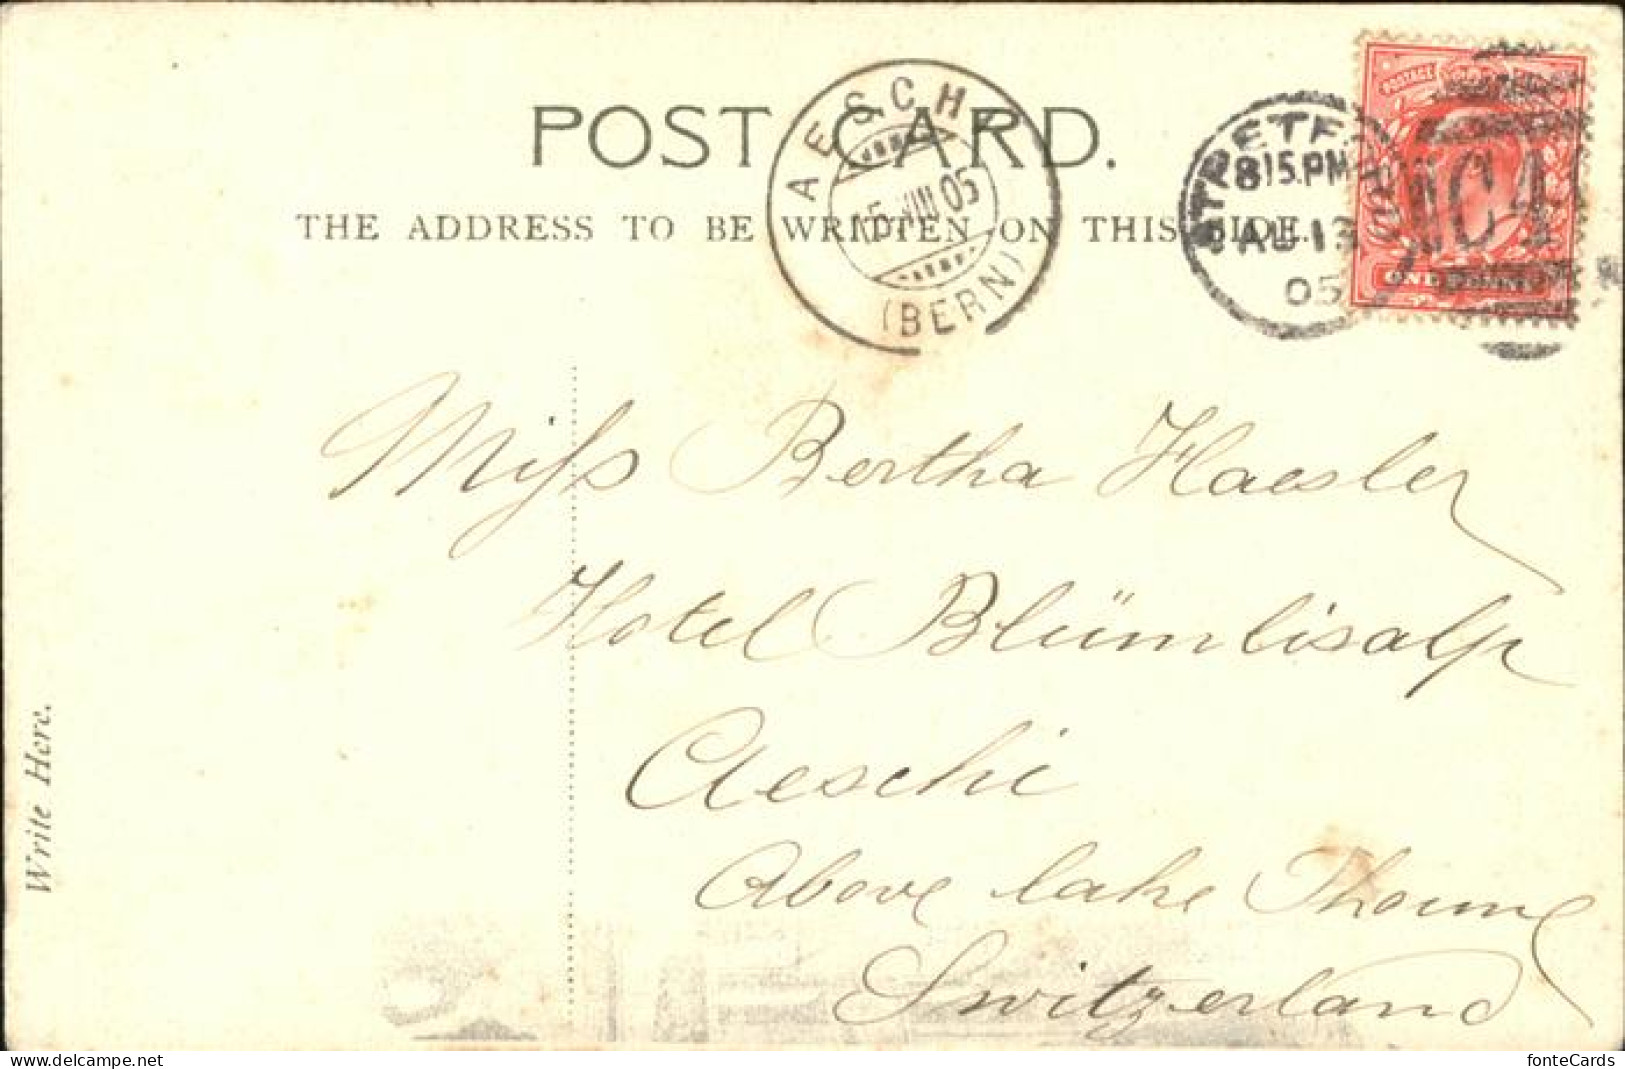 POST CARD.
THE ADDRESS TO BE WRITTEN ON THIS SIDE.
AESCHI
15 VIII 05
(BERN)
8 15 PM
AU 13
05
Miss Bertha Haesler
Hotel Blümlisalp
Aeschi
Above lake Thoune
Switzerland
Write Here.
http://www.delcampe.net
fonteCards